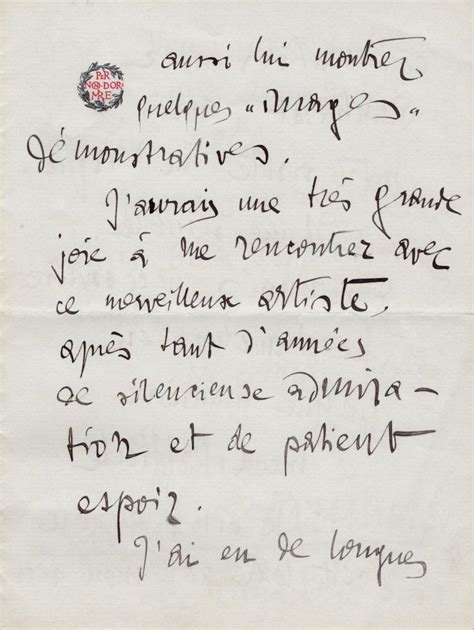 PER
NON DOR
MIRE
aussi lui montrer
quelques "images"
démonstratives.
J'aurais une très grande
joie à me rencontrer avec
ce merveilleux artiste,
après tant d'années
de silencieuse admira-
tion et de patient
espoir.
J'ai eu de longues